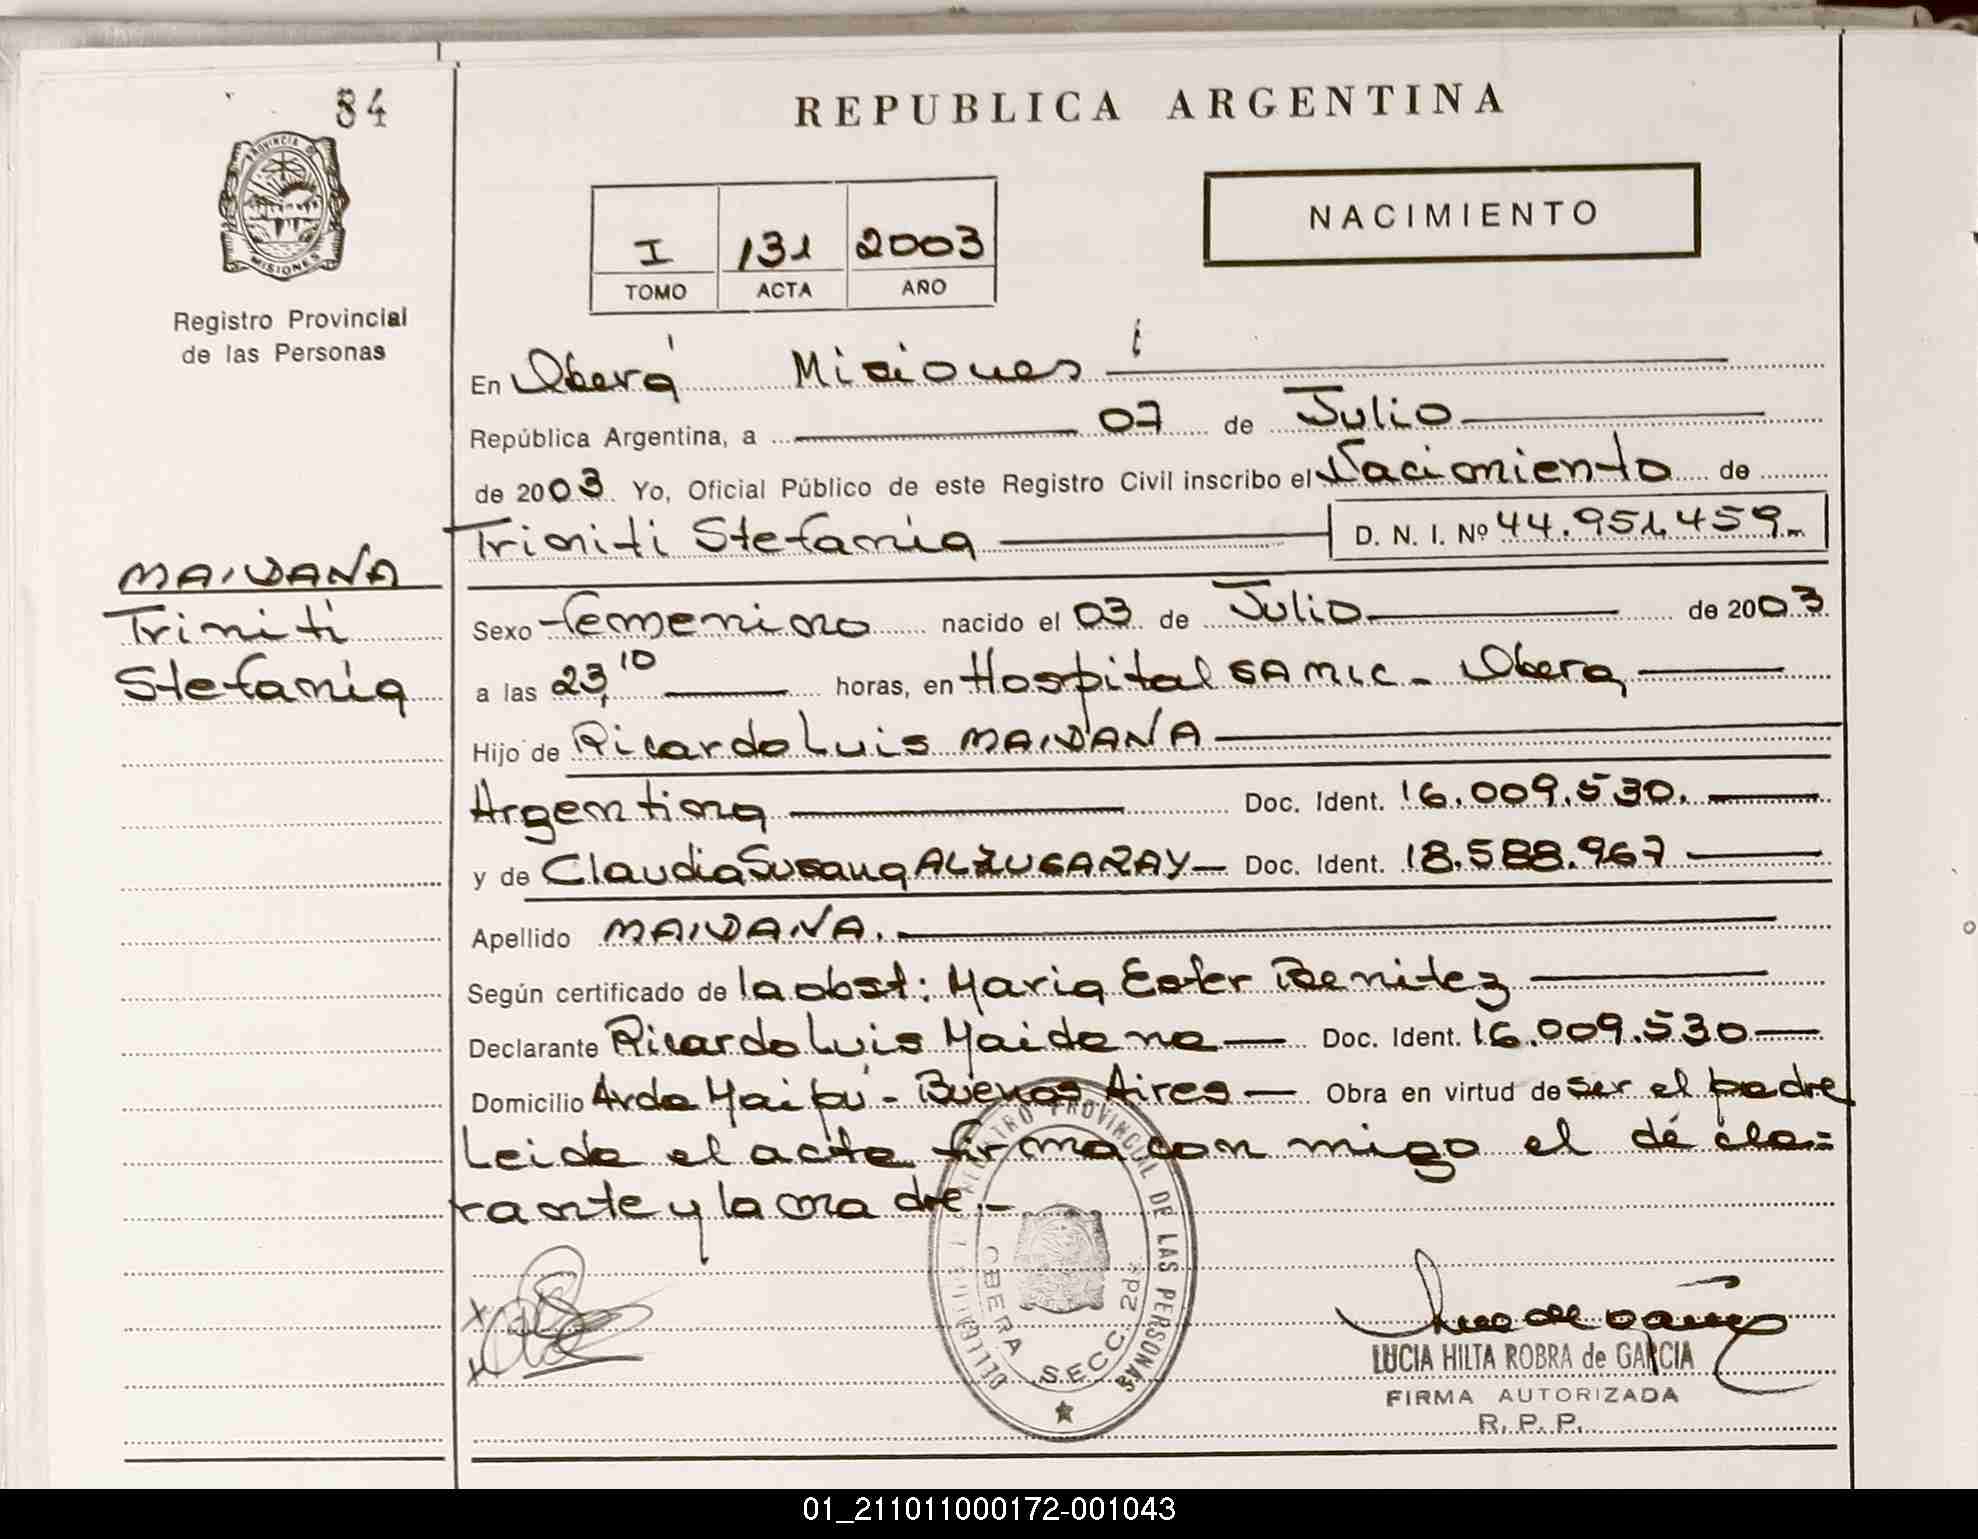 84
REPUBLICA ARGENTINA
PROVINCIA DE
MISIONES
Registro Provincial
de las Personas
I 131 2003
TOMO ACTA AÑO
NACIMIENTO
En Oberá Misiones
República Argentina, a 07 de Julio
de 2003 Yo, Oficial Público de este Registro Civil inscribo el Nacimiento de
Triniti Stefania D. N. I. Nº 44.951.459
MAIDANA
Triniti
Stefania
Sexo femenino nacido el 03 de Julio de 2003
a las 23,10 horas, en Hospital SAMIC - Obera
Hijo de Ricardo Luis MAIDANA
Argentina Doc. Ident. 16.009.530.
y de Claudia Susana ALZUGARAY - Doc. Ident. 18.588.967
Apellido MAIDANA.
Según certificado de la obst: Maria Ester Benitez
Declarante Ricardo Luis Maidana Doc. Ident. 16.009.530
Domicilio Avda Maipú - Buenos Aires - Obra en virtud de ser el padre
Leida el acta firma con migo el décla=
rante y la madre.-
REGISTRO PROVINCIAL DE LAS PERSONAS
OBERA SECC. 2da
LUCIA HILTA ROBRA de GARCIA
FIRMA AUTORIZADA
R. P. P.
01_211011000172-001043